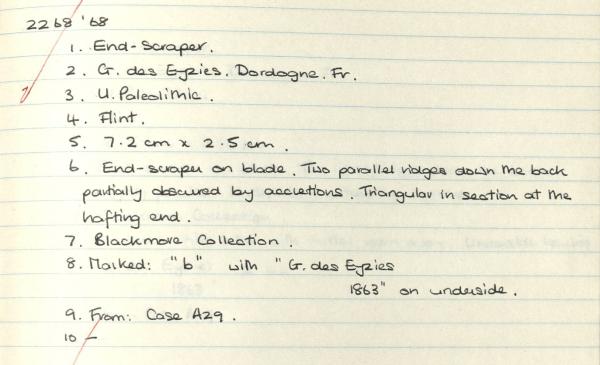 2268 '68
1. End-scraper.
2. G. des Eyzies. Dordogne. Fr.
3. U. Paleolithic.
4. Flint.
5. 7.2 cm x 2.5 cm.
6. End-scraper on blade. Two parallel ridges down the back
partially obscured by accretions. Triangular in section at the
hafting end.
7. Blackmore Collection.
8. Marked: "b" with "G. des Eyzies
1863" on underside.
9. From: Case A29.
10 —